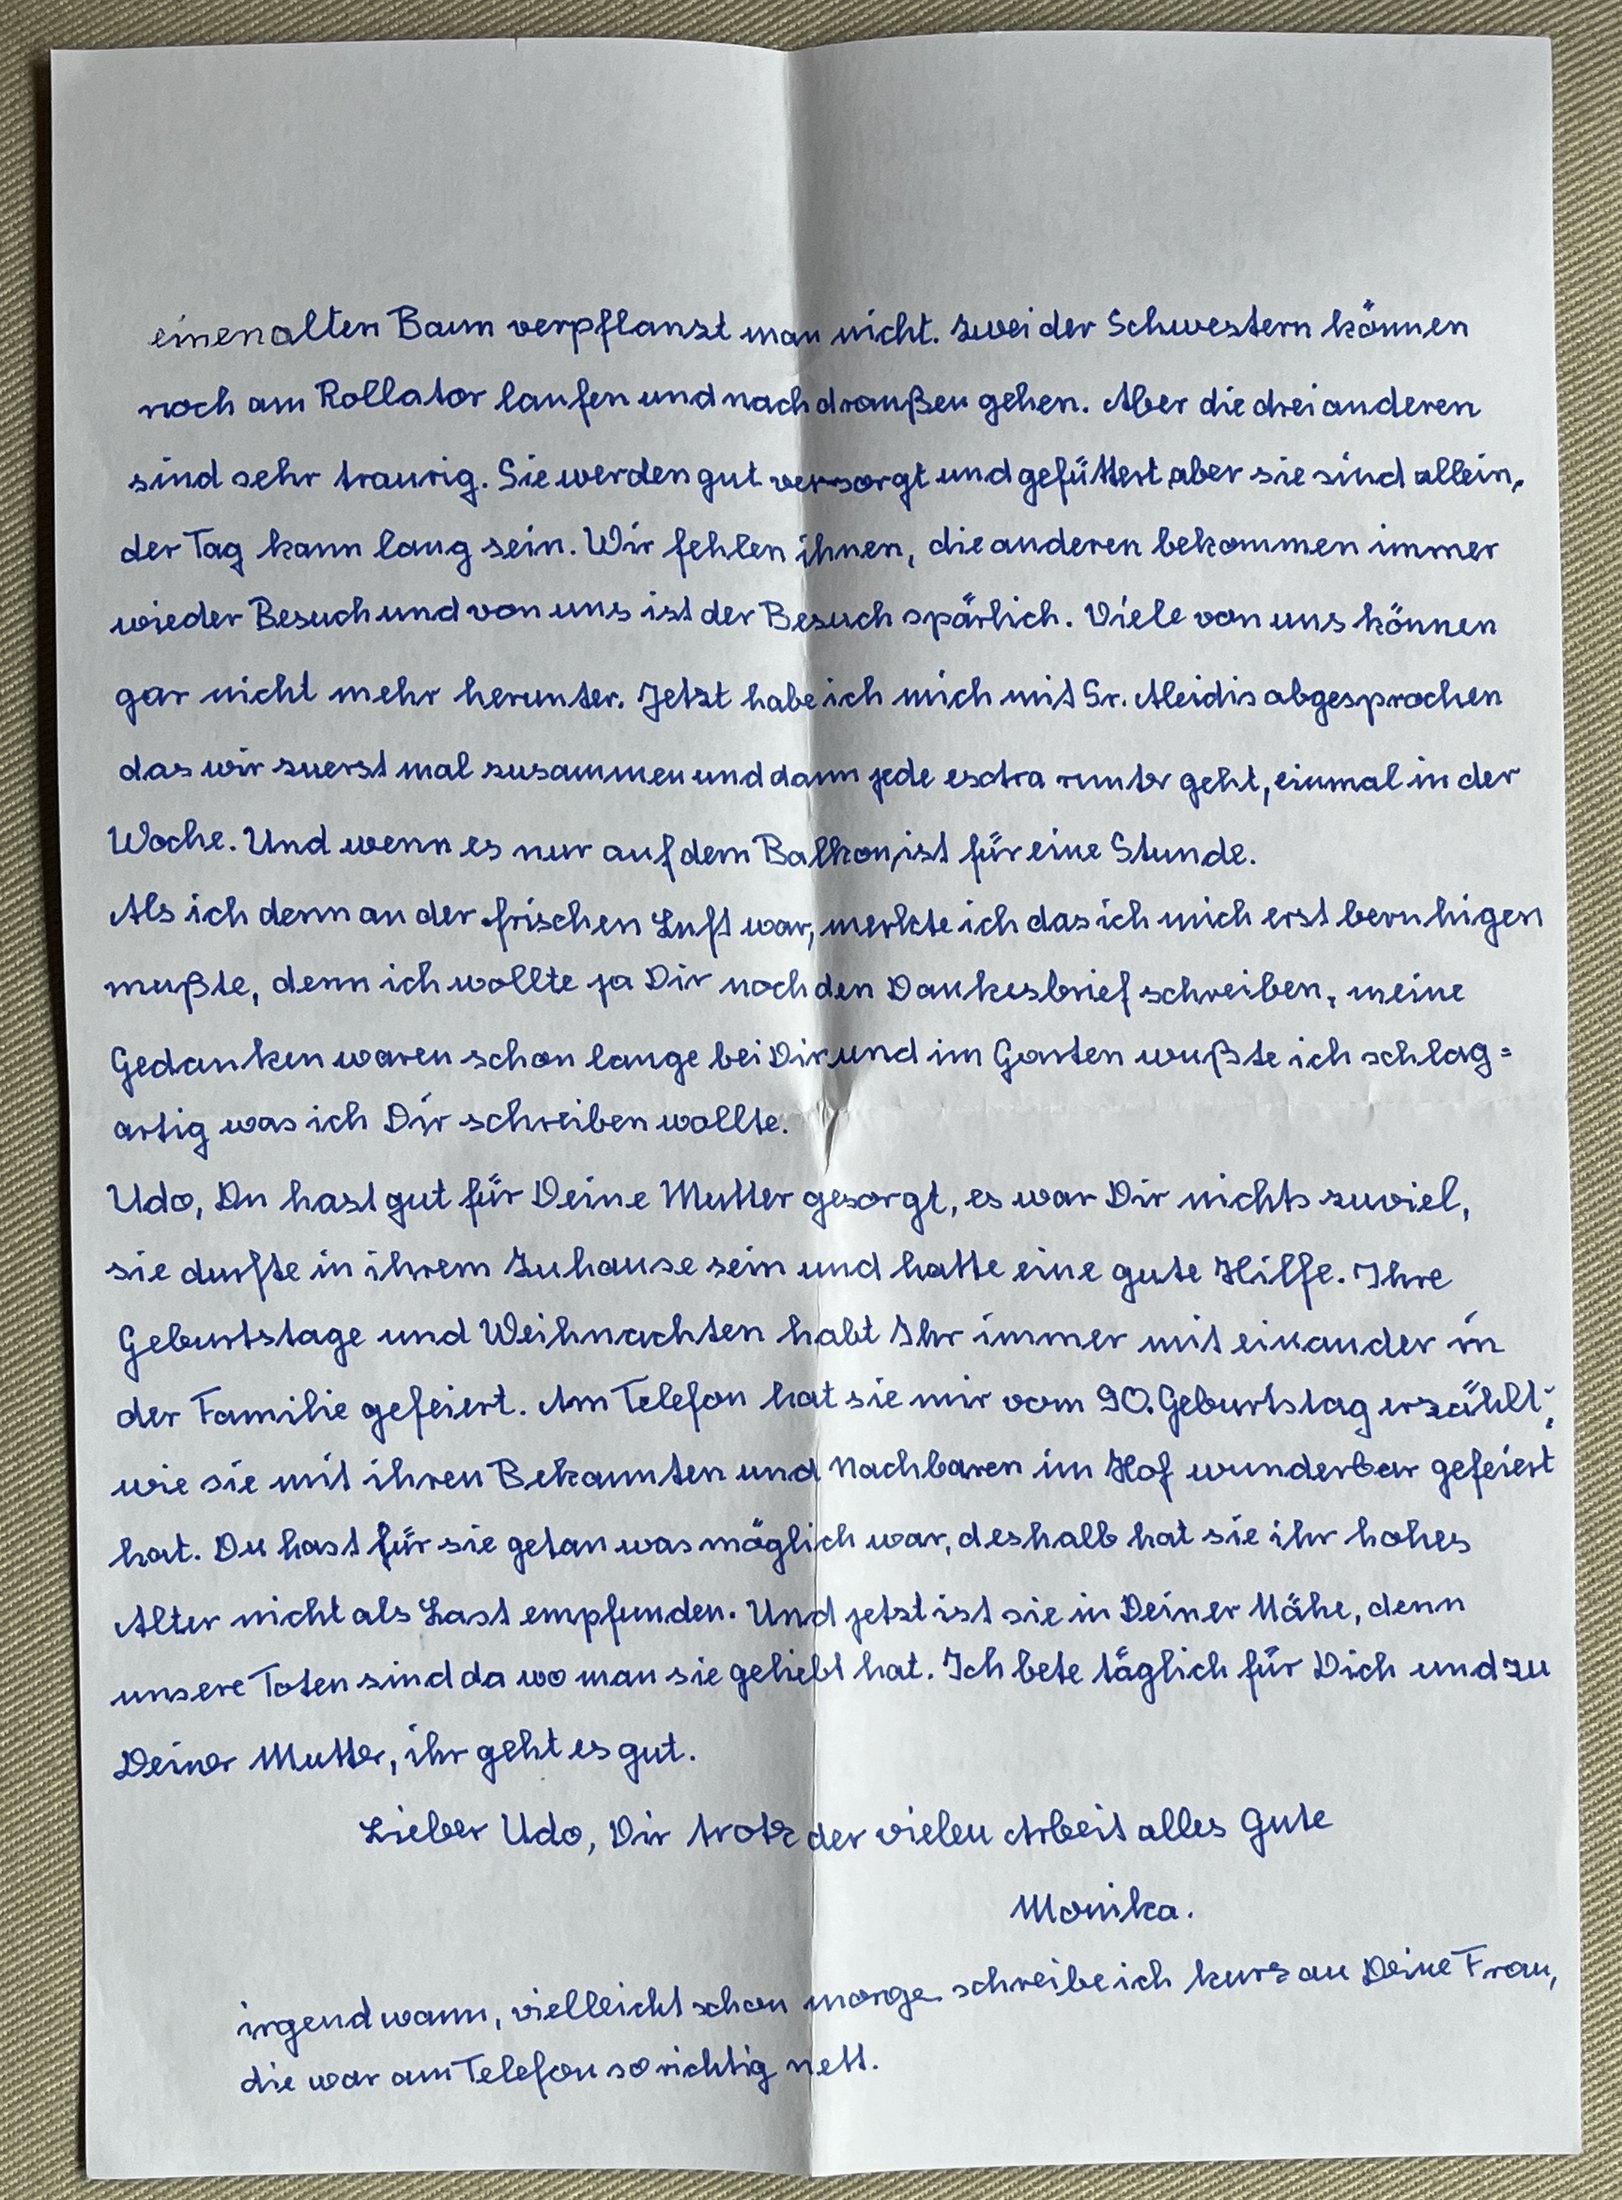 einen alten Baum verpflanzt man nicht. Zwei der Schwestern können
noch am Rollator laufen und nach draußen gehen. Aber die drei anderen
sind sehr traurig. Sie werden gut versorgt und gefüttert, aber sie sind allein,
der Tag kann lang sein. Wir fehlen ihnen, die anderen bekommen immer
wieder Besuch und von uns ist der Besuch spärlich. Viele von uns können
gar nicht mehr herunter. Jetzt habe ich mich mit Sr. Aleidis abgesprochen
das wir zuerst mal zusammen und dann jede esctra runter geht, einmal in der
Woche. Und wenn es nur auf dem Balkon, ist für eine Stunde.
Als ich denn an der frischen Luft war, merkte ich das ich mich erst beruhigen
mußte, denn ich wollte ja Dir noch den Dankesbrief schreiben, meine
Gedanken waren schon lange bei Dir und im Garten wußte ich schlag=
artig was ich Dir schreiben wollte.
Udo, Du hast gut für Deine Mutter gesorgt, es war Dir nichts zuviel,
sie durfte in ihrem Zuhause sein und hatte eine gute Hilfe. Ihre
Geburtstage und Weihnachten habt Ihr immer mit einander in
der Familie gefeiert. Am Telefon hat sie mir vom 90. Geburtstag erzählt,
wie sie mit ihren Bekannten und Nachbaren im Hof wunderbar gefeiert
hat. Du hast für sie getan was möglich war, deshalb hat sie ihr hohes
Alter nicht als Last empfunden. Und jetzt ist sie in Deiner Nähe, denn
unsere Toten sind da wo man sie geliebt hat. Ich bete täglich für Dich und zu
Deiner Mutter, ihr geht es gut.
Lieber Udo, Dir trotz der vielen Arbeit alles Gute
Monika.
irgendwann, vielleicht schon morge schreibe ich kurz an Deine Frau,
die war am Telefon so richtig nett.